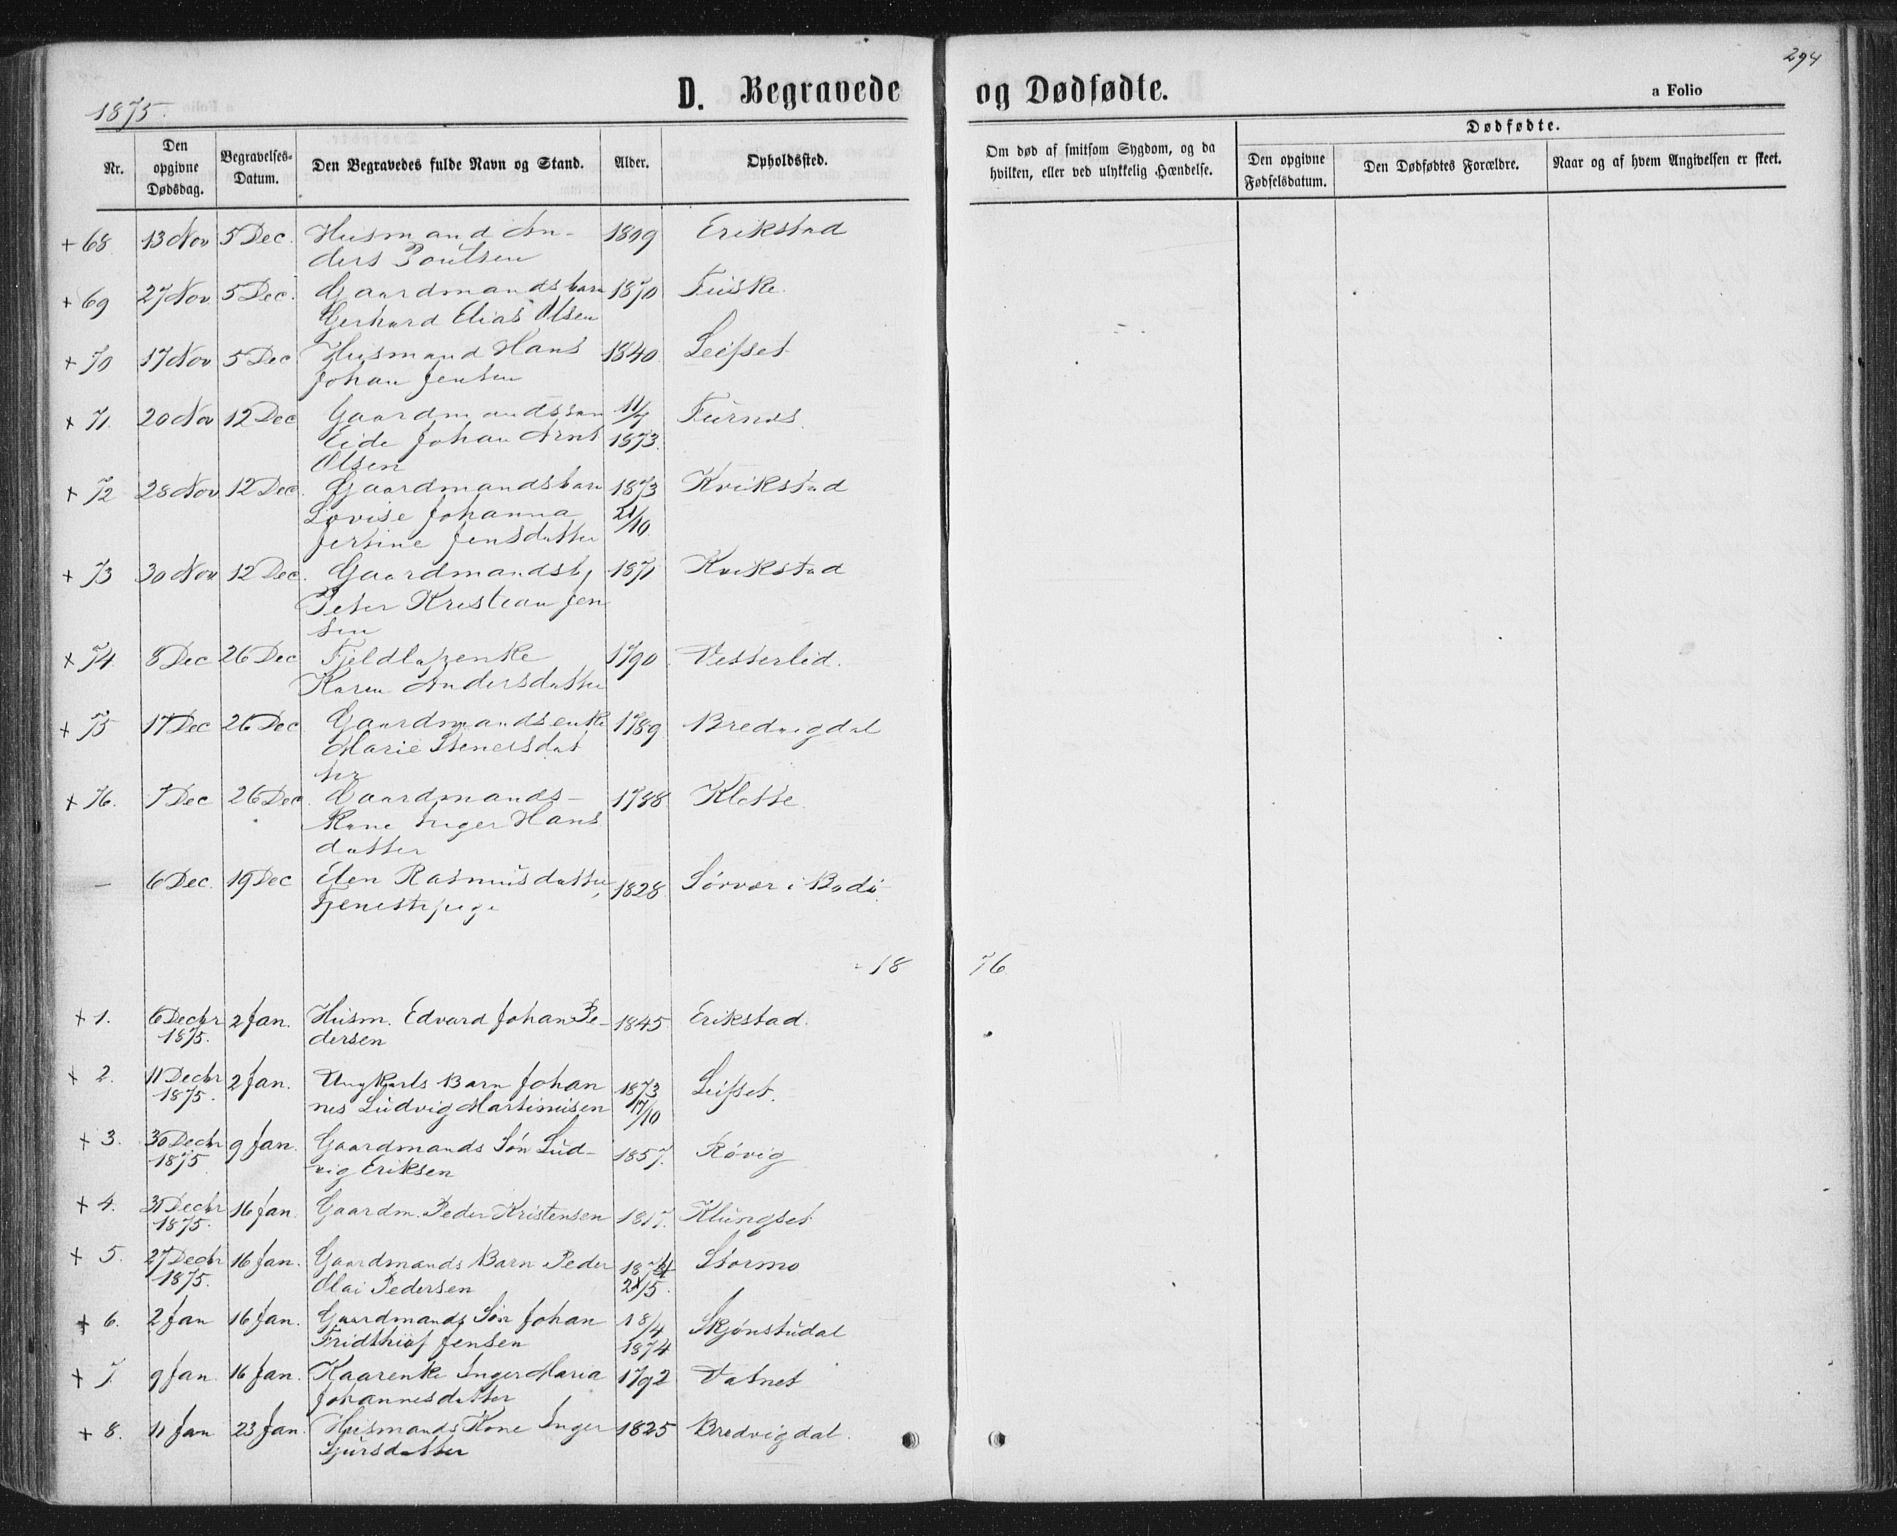 1875.
D. Begravede og Dødfødte.
294
a Folio
Nr.
Den opgivne Dødsdag.
Begravelses-Datum.
Den Begravedes fulde Navn og Stand.
Alder.
Opholdssted.
Om død af smitsom Sygdom, og da hvilken, eller ved ulykkelig Hændelse.
Dødfødte.
Den opgivne Fødselsdatum.
Den Dødfødtes Forældre.
Naar og af hvem Angivelsen er skeet.
+ 68 13 Nov 5 Dec. Husmand An- 1809 Erikstad
ders Poulsen
+ 69 27 Nov 5 Dec. Gaardmandsbarn 1870 Fuske
Gerhard Elias Olsen
+ 70 17 Nov 5 Dec Husmand Hans 1840 Leifset
Johan Jensen
+ 71 20 Nov 12 Dec Gaardmandsbarn 11/7 Furnes.
Eide Johan Arnt 1873.
Olsen
+ 72 28 Nov 12 Dec. Gaardmandsbarn 1873 Kvikstad
Lovise Johanna 21/10
Jertine Jensdatter
+ 73 30 Nov 12 Dec. Gaardmandsb, 1871 Kvikstad
Peter Kristian Jen
sen
+ 74. 8 Dec 26 Dec Fjeldlapenke 1790 Vesterlid.
Karen Andersdatter
+ 75 17 Dec 26 Dec Gaardmandsenke 1789 Bredvigdal
Marie Stenersdat
ter
+ 76. 7 Dec 26 Dec. Gaardmands- 1788 Klette
Kone Inger Hans
datter
- 6 Dec. 19 Dec Elen Rasmusdatter, 1828 Sørvær i Bodø
Tjenestepige
18 76
+ 1. 6 Decbr 2 Jan. Husm. Edvard Johan Pe- 1845 Erikstad.
1875. dersen
+ 2. 11 Decbr 2 Jan. Ungkarls Barn Johan 1873 Leifset.
1875. nes Ludvig Martinusen 17/10
+ 3. 30 Decbr 9 Jan. Gaardmands Søn Lud- 1857. Røvig
1875 vig Eriksen
+ 4. 31 Decbr 16 Jan. Gaardm. Peder Kristensen 1817. Klungset
1875.
+ 5. 27 Decbr 16 Jan. Gaardmands Barn Peder 1874 Stormo
1875. Olai Pedersen 21/5.
+ 6. 2 Jan 16 Jan. Gaardmands Søn Johan 18/4 Skjønstudal
Fridthiof Jensen 1874
+ 7 9 Jan 16 Jan. Kaarenke Inger Maria 1792 Vatnet
Johannesdatter
+ 8. 11 Jan 23 Jan. Husmands Kone Inger 1825 Bredvigdal.
Sjursdatter